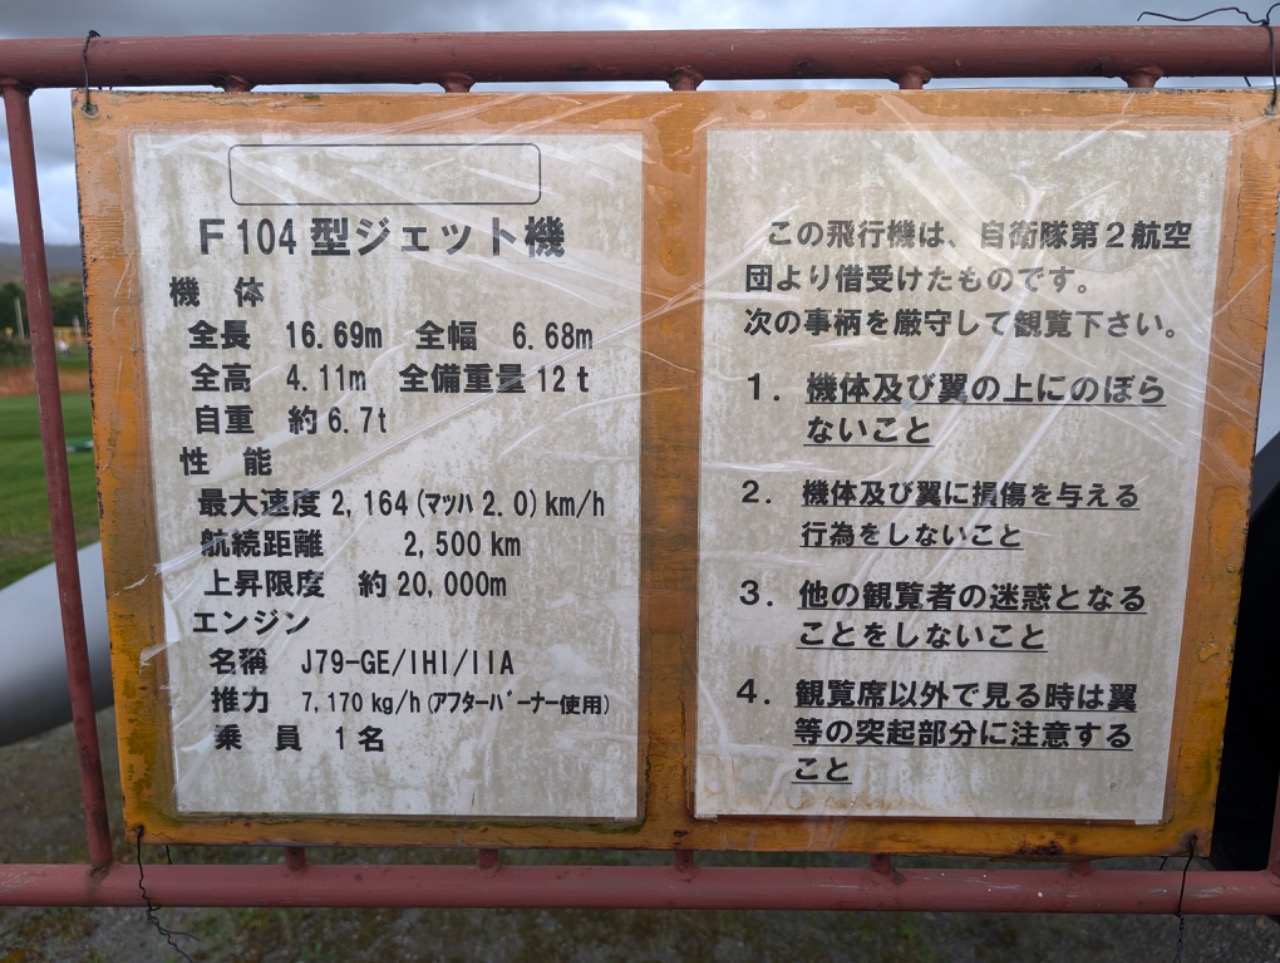 F104型ジェット機
機　体
全長　16.69m　全幅　6.68m
全高　4.11m　全備重量 12t
自重　約6.7t
性　能
最大速度 2,164(マッハ 2.0)km/h
航続距離　2,500km
上昇限度　約20,000m
エンジン
名称　J79-GE/IHI/IIA
推力　7,170kg/h(アフターバーナー使用)
乗　員　1名
この飛行機は、自衛隊第２航空
団より借受けたものです。
次の事柄を厳守して観覧下さい。
１．機体及び翼の上にのぼら
ないこと
２．機体及び翼に損傷を与える
行為をしないこと
３．他の観覧者の迷惑となる
ことをしないこと
４．観覧席以外で見る時は翼
等の突起部分に注意する
こと